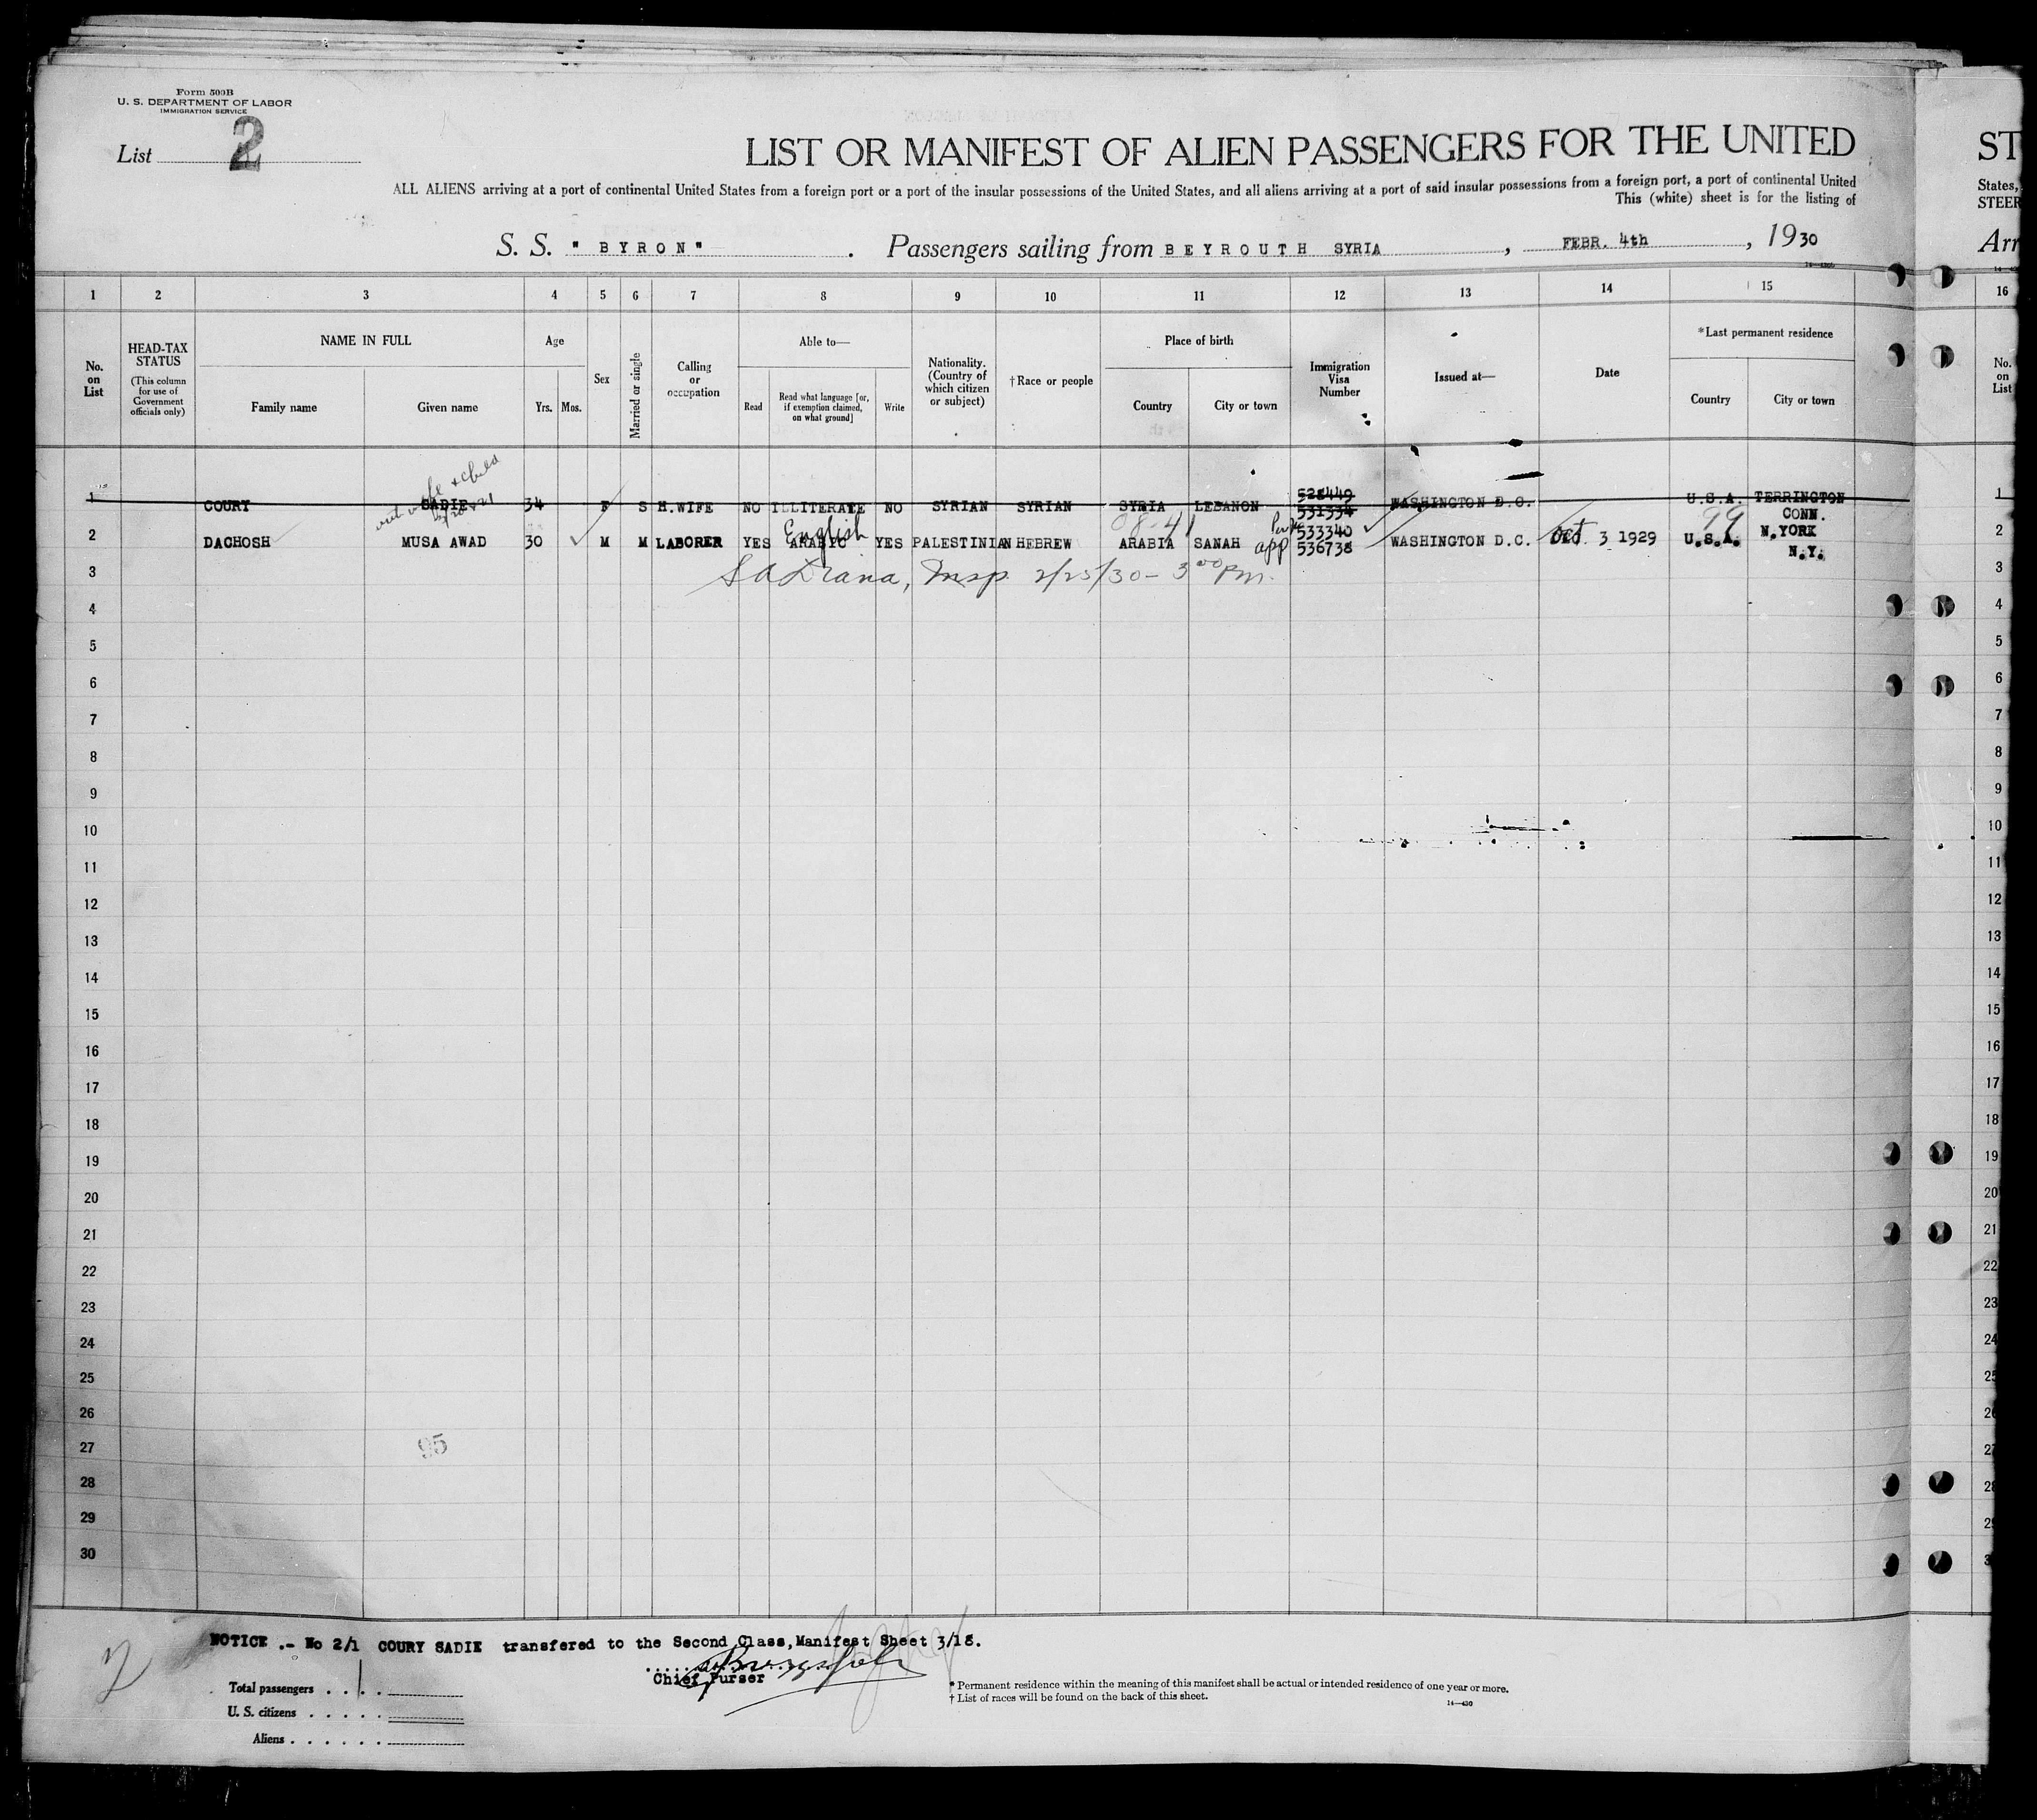 Form 500B
U. S. DEPARTMENT OF LABOR
IMMIGRATION SERVICE
List 2
LIST OR MANIFEST OF ALIEN PASSENGERS FOR THE UNITED
ST
ALL ALIENS arriving at a port of continental United States from a foreign port or a port of the insular possessions of the United States, and all aliens arriving at a port of said insular possessions from a foreign port, a port of continental United
States,
This (white) sheet is for the listing of
STEER
S. S. " BYRON" . Passengers sailing from BEYROUTH SYRIA , FEBR. 4th , 1930
Arr
1 2 3 4 5 6 7 8 9 10 11 12 13 14 15 16
No. on List
HEAD-TAX STATUS
(This column for use of Government officials only)
NAME IN FULL
Family name
Given name
Age
Yrs. Mos.
Sex
Married or single
Calling or occupation
Able to—
Read
Read what language [or, if exemption claimed, on what ground]
Write
Nationality. (Country of which citizen or subject)
†Race or people
Place of birth
Country
City or town
Immigration Visa Number
Issued at—
Date
*Last permanent residence
Country
City or town
No. on List
wife & child
528449
1 COURY SADIE 34 F S H.WIFE NO ILLITERATE NO SYRIAN SYRIAN SYRIA LEBANON 531334 WASHINGTON D.C. U.S.A. TERRINGTON CONN. 1
English
08-41
533340
99
2 DACHOSH MUSA AWAD 30 M M LABORER YES ARABIC YES PALESTINIAN HEBREW ARABIA SANAH app 536738 WASHINGTON D.C. Oct. 3 1929 U.S.A. N.YORK N.Y. 2
3 Insp. 2/25/30 - 3 00 Pm. 3
4 4
5 5
6 6
7 7
8 8
9 9
10 10
11 11
12 12
13 13
14 14
15 15
16 16
17 17
18 18
19 19
20 20
21 21
22 22
23 23
24 24
25 25
26 26
27 27
95
28 28
29 29
30
2
NOTICE .- No 2/1 COURY SADIE transfered to the Second Class,Manifest Sheet 3/18.
Chief Purser
Total passengers . . 1 .
U. S. citizens . . . . .
Aliens . . . . . .
* Permanent residence within the meaning of this manifest shall be actual or intended residence of one year or more.
† List of races will be found on the back of this sheet.
14—430